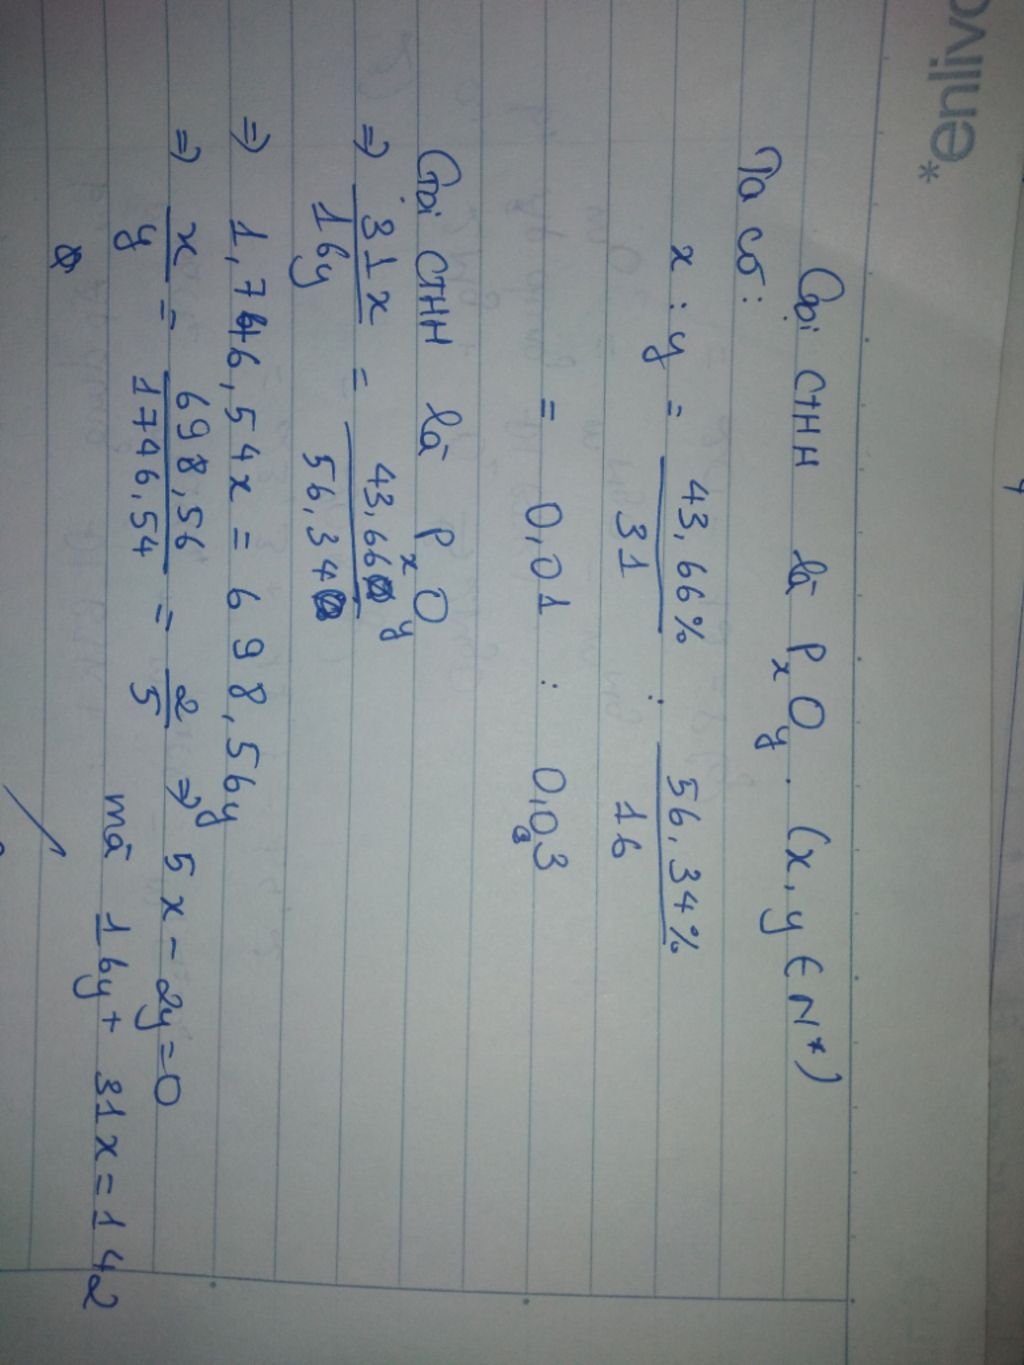 *enliv
Gọi CTHH là PxOy. (x, y ∈ N*)
Ta có:
x : y = 43,66% / 31 : 56,34% / 16
= 0,01 : 0,03
Gọi CTHH là PxOy
=> 31x / 16y = 43,66 / 56,34
=> 1,746,54x = 698,56y
=> x / y = 698,56 / 1746,54 = 2 / 5 => 5x - 2y = 0
mà 16y + 31x = 142